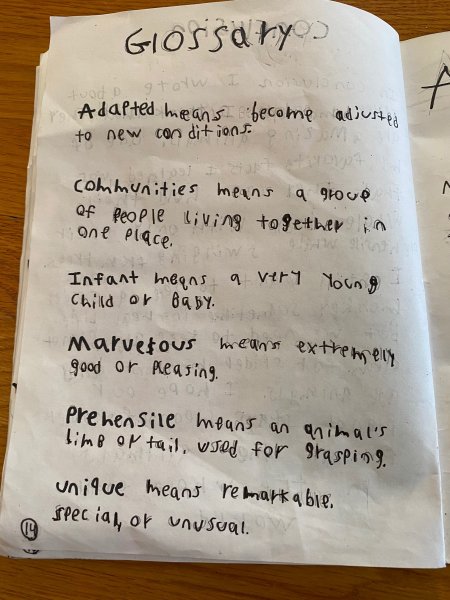 Glossary
Adapted means become adjusted
to new conditions.
communities means a group
of people living together in
one place.
Infant means a very young
child or Baby.
Marvelous means extremely
good or pleasing.
prehensile means an animal's
limb or tail, used for grasping.
unique means remarkable,
special, or unusual.
14